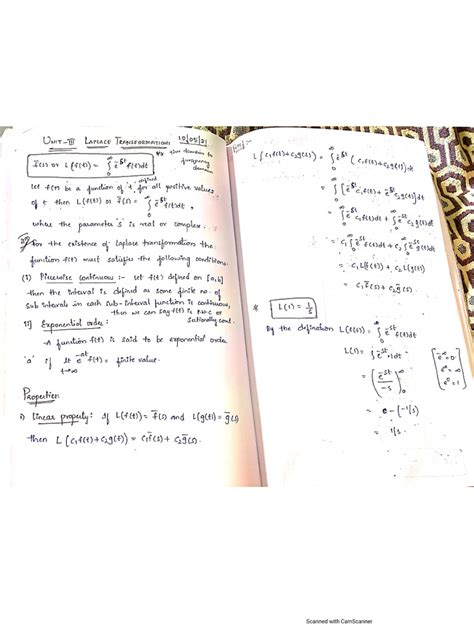 UNIT-III LAPLACE TRANSFORMATIONS 10/05/21
** time domain to frequency domain
f̄(s) or L(f(t)) = ∫₀^∞ e^-st f(t)dt
Let f(t) be a function of 't' defined for all positive values
of t then L(f(t)) or f̄(s) = ∫₀^∞ e^-st f(t)dt,
where the parameter 's' is real or complex.
For the existence of Laplace transformation the
function f(t) must satisfies the following conditions.
(i) Piecewise continuous :- Let f(t) defined on [a,b]
then the interval is defined as some finite no. of
sub intervals in each sub-interval function is continuous,
then we can say f(t) is p.w.c or
sectionally cont.
ii] Exponential order :-
A function f(t) is said to be exponential order
'a' if lt t→∞ e^-at f(t) = finite value.
Properties
1) Linear property :- If L(f(t)) = f̄(s) and L(g(t)) = ḡ(s)
then L(c₁f(t)+c₂g(t)) = c₁f̄(s) + c₂ḡ(s).
L[c₁f(t)+c₂g(t)] = ∫₀^∞ e^-st (c₁f(t)+c₂g(t))dt
= ∫₀^∞ [e^-st c₁f(t) + e^-st c₂g(t)]dt
= ∫₀^∞ e^-st c₁f(t)dt + ∫₀^∞ e^-st c₂g(t)dt
= c₁∫₀^∞ e^-st f(t)dt + c₂∫₀^∞ e^-st g(t)dt
= c₁L(f(t)) + c₂L(g(t))
= c₁f̄(s) + c₂ḡ(s).
* L(1) = 1/s
By the defination L(f(t)) = ∫₀^∞ e^-st f(t)dt
L(1) = ∫₀^∞ e^-st ·1dt
= (e^-st/-s)₀^∞
[e^-∞=0
e^∞=∞
e^0=1]
= 0-(-1/s)
= 1/s
Scanned with CamScanner